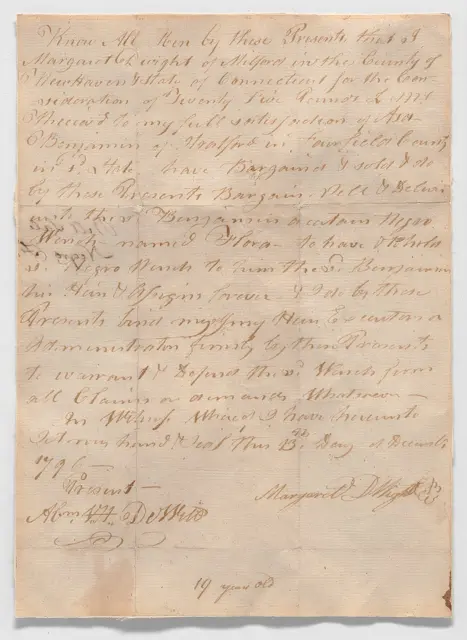 Know All Men by these Presents that I
Margaret Dwight of Milford in the County of
New Haven & State of Connecticut for the Con-
sideration of Twenty Five Pounds L My
Received to my full satisfaction of Asa
Benjamin of Stratford in Fairfield County
in sd. State, have Bargained & sold & do
by these Presents Bargain Sell & Deliver
unto the sd. Benjamin a certain Negro
Wench named Flora to have & to hold
sd. Negro Wench to him the sd. Benjamin
his Heirs & Assigns forever & I do by these
Presents bind myself my Heirs Executors or
Administrators firmly by these Presents
to warrant & Defend the sd. Wench from
all Claims or demands Whatsoever —
In Witness Whereof I have hereunto
Set my hand & seal this 13th. Day of Decemb
1796
Present —
Margaret Dwight
Abm. V. H. DeWitt
19 years old